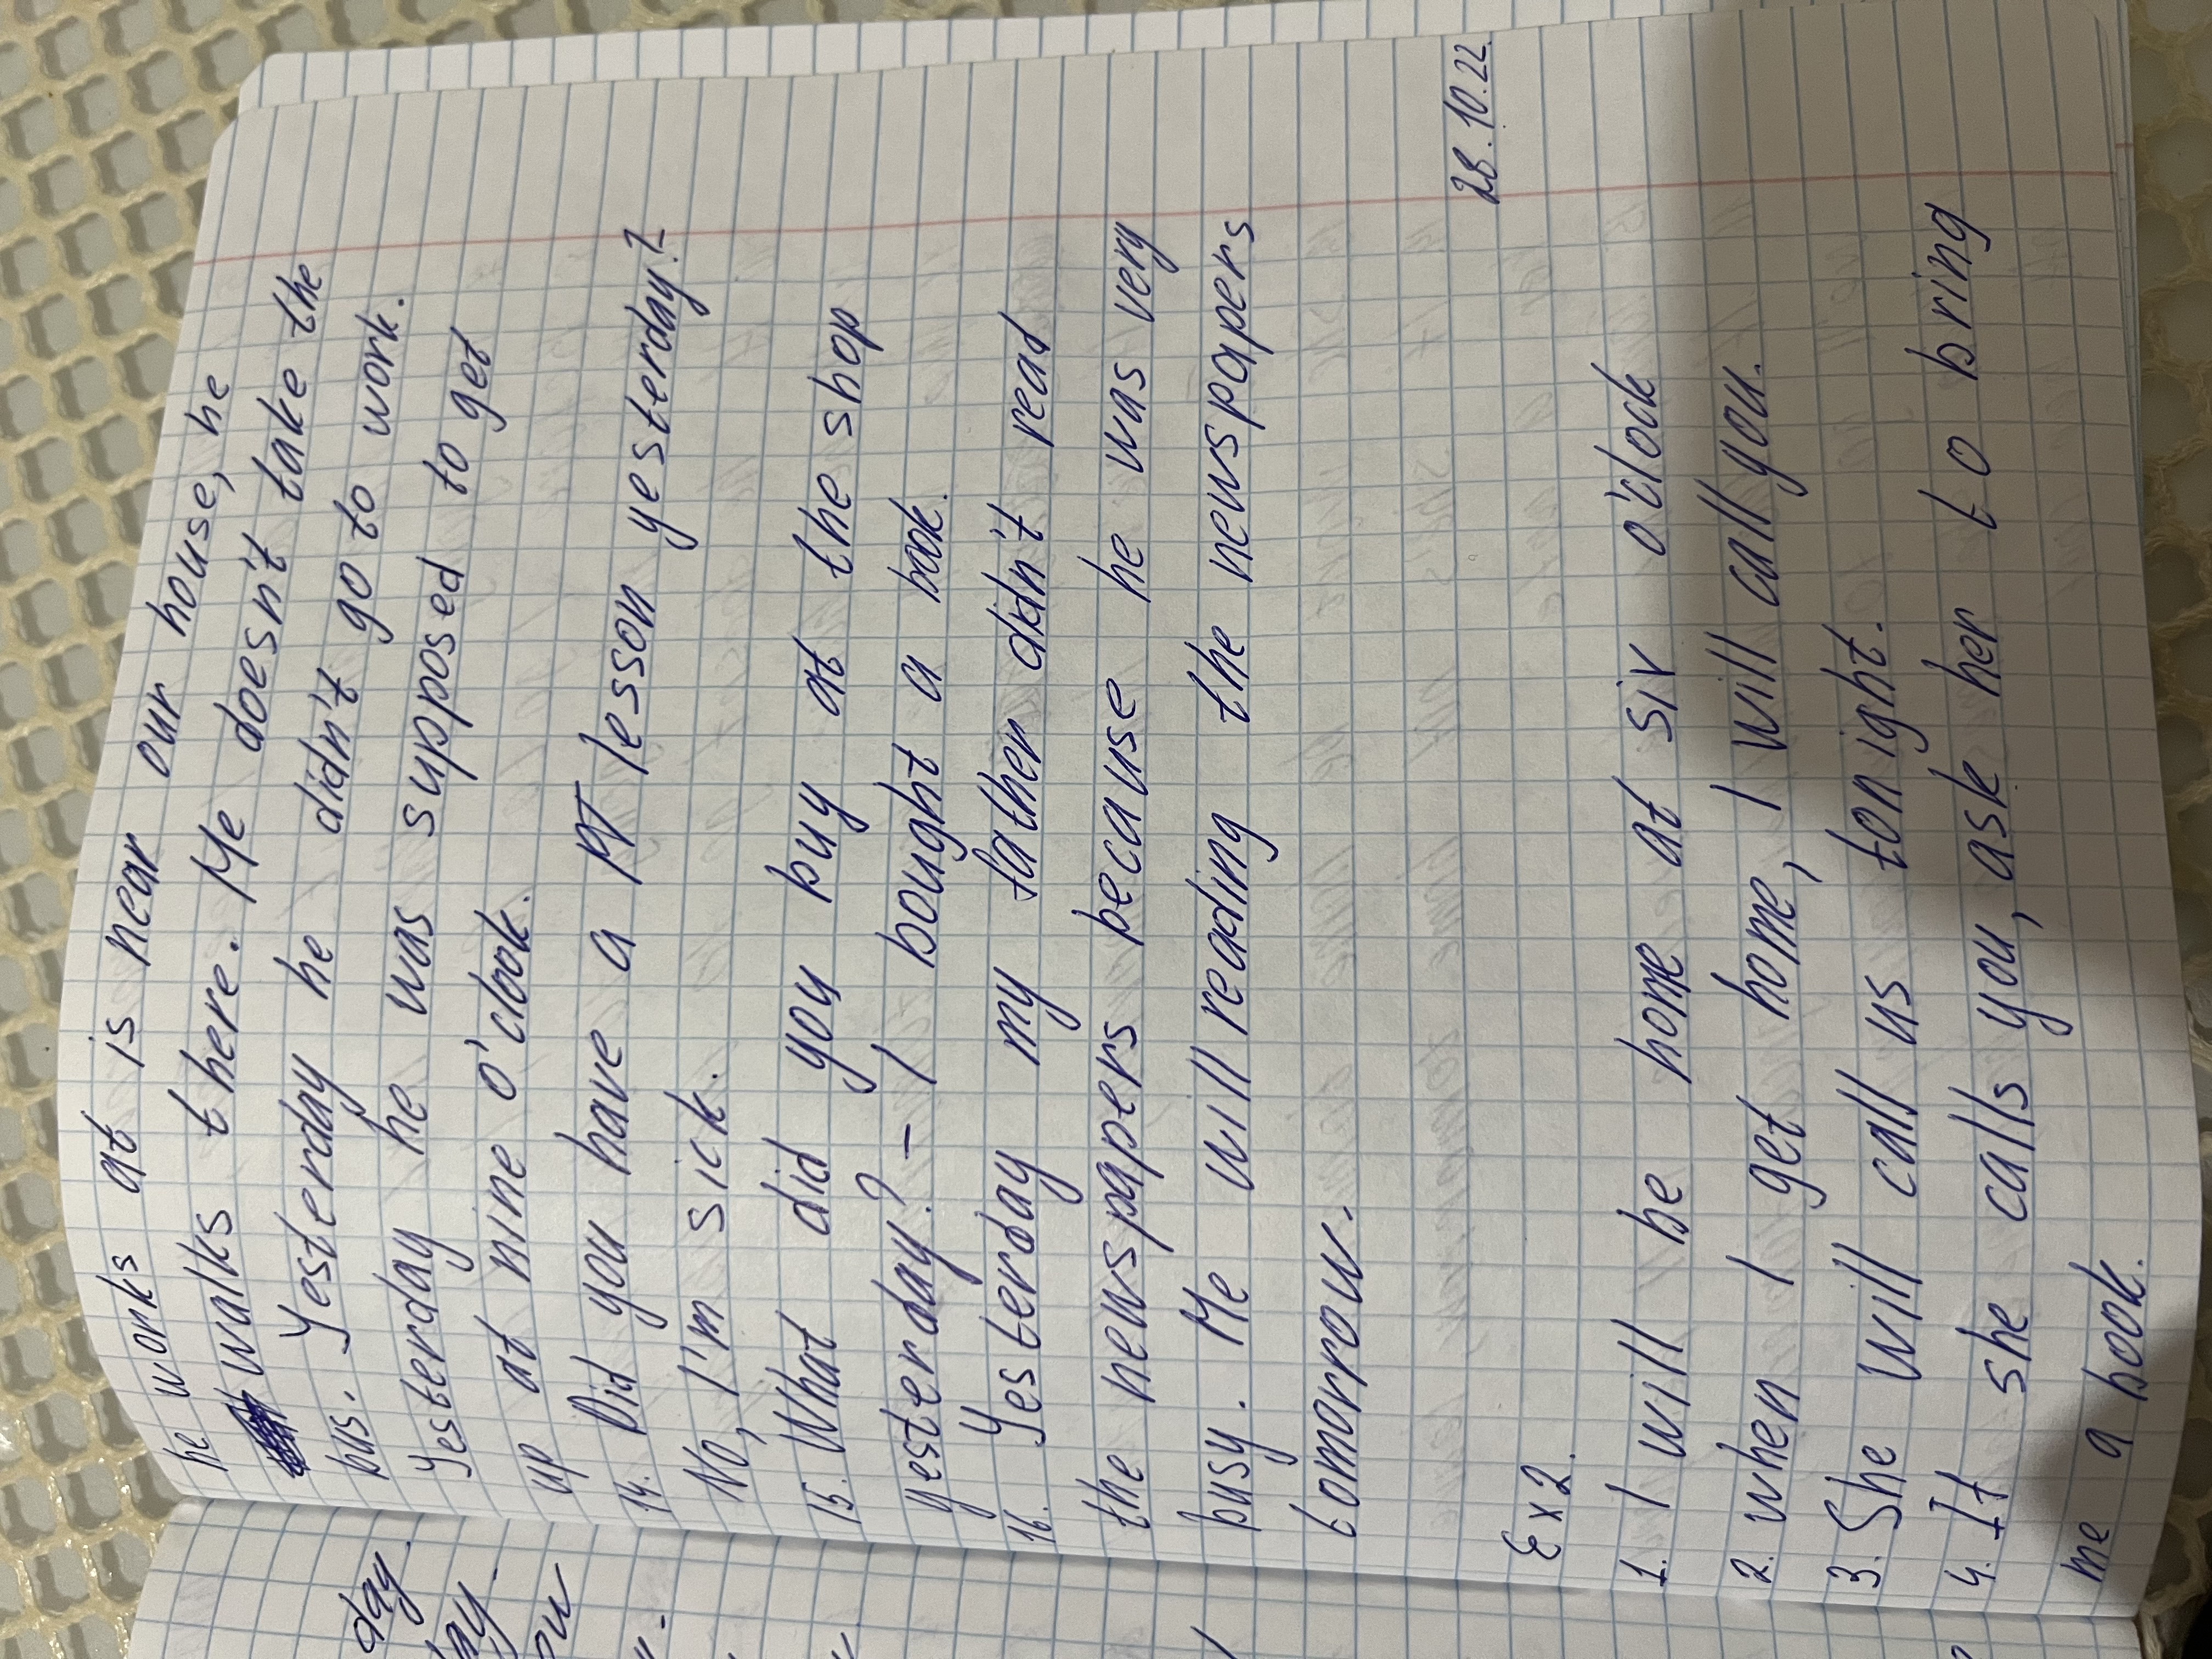 he works at is near our house, he
walks there. He doesn't take the
bus. Yesterday he didn't go to work.
Yesterday he was supposed to get
up at nine o'clock.
14. Did you have a PT lesson yesterday?
No, I'm sick.
15. What did you buy at the shop
yesterday? – I bought a book.
16. Yesterday my father didn't read
the newspapers because he was very
busy. He will reading the newspapers
tomorrow.
28.10.22
Ex 2.
1. I will be home at six o'clock
2. when I get home, I will call you.
3. She will call us tonight.
4. If she calls you, ask her to bring
me a book.
day.